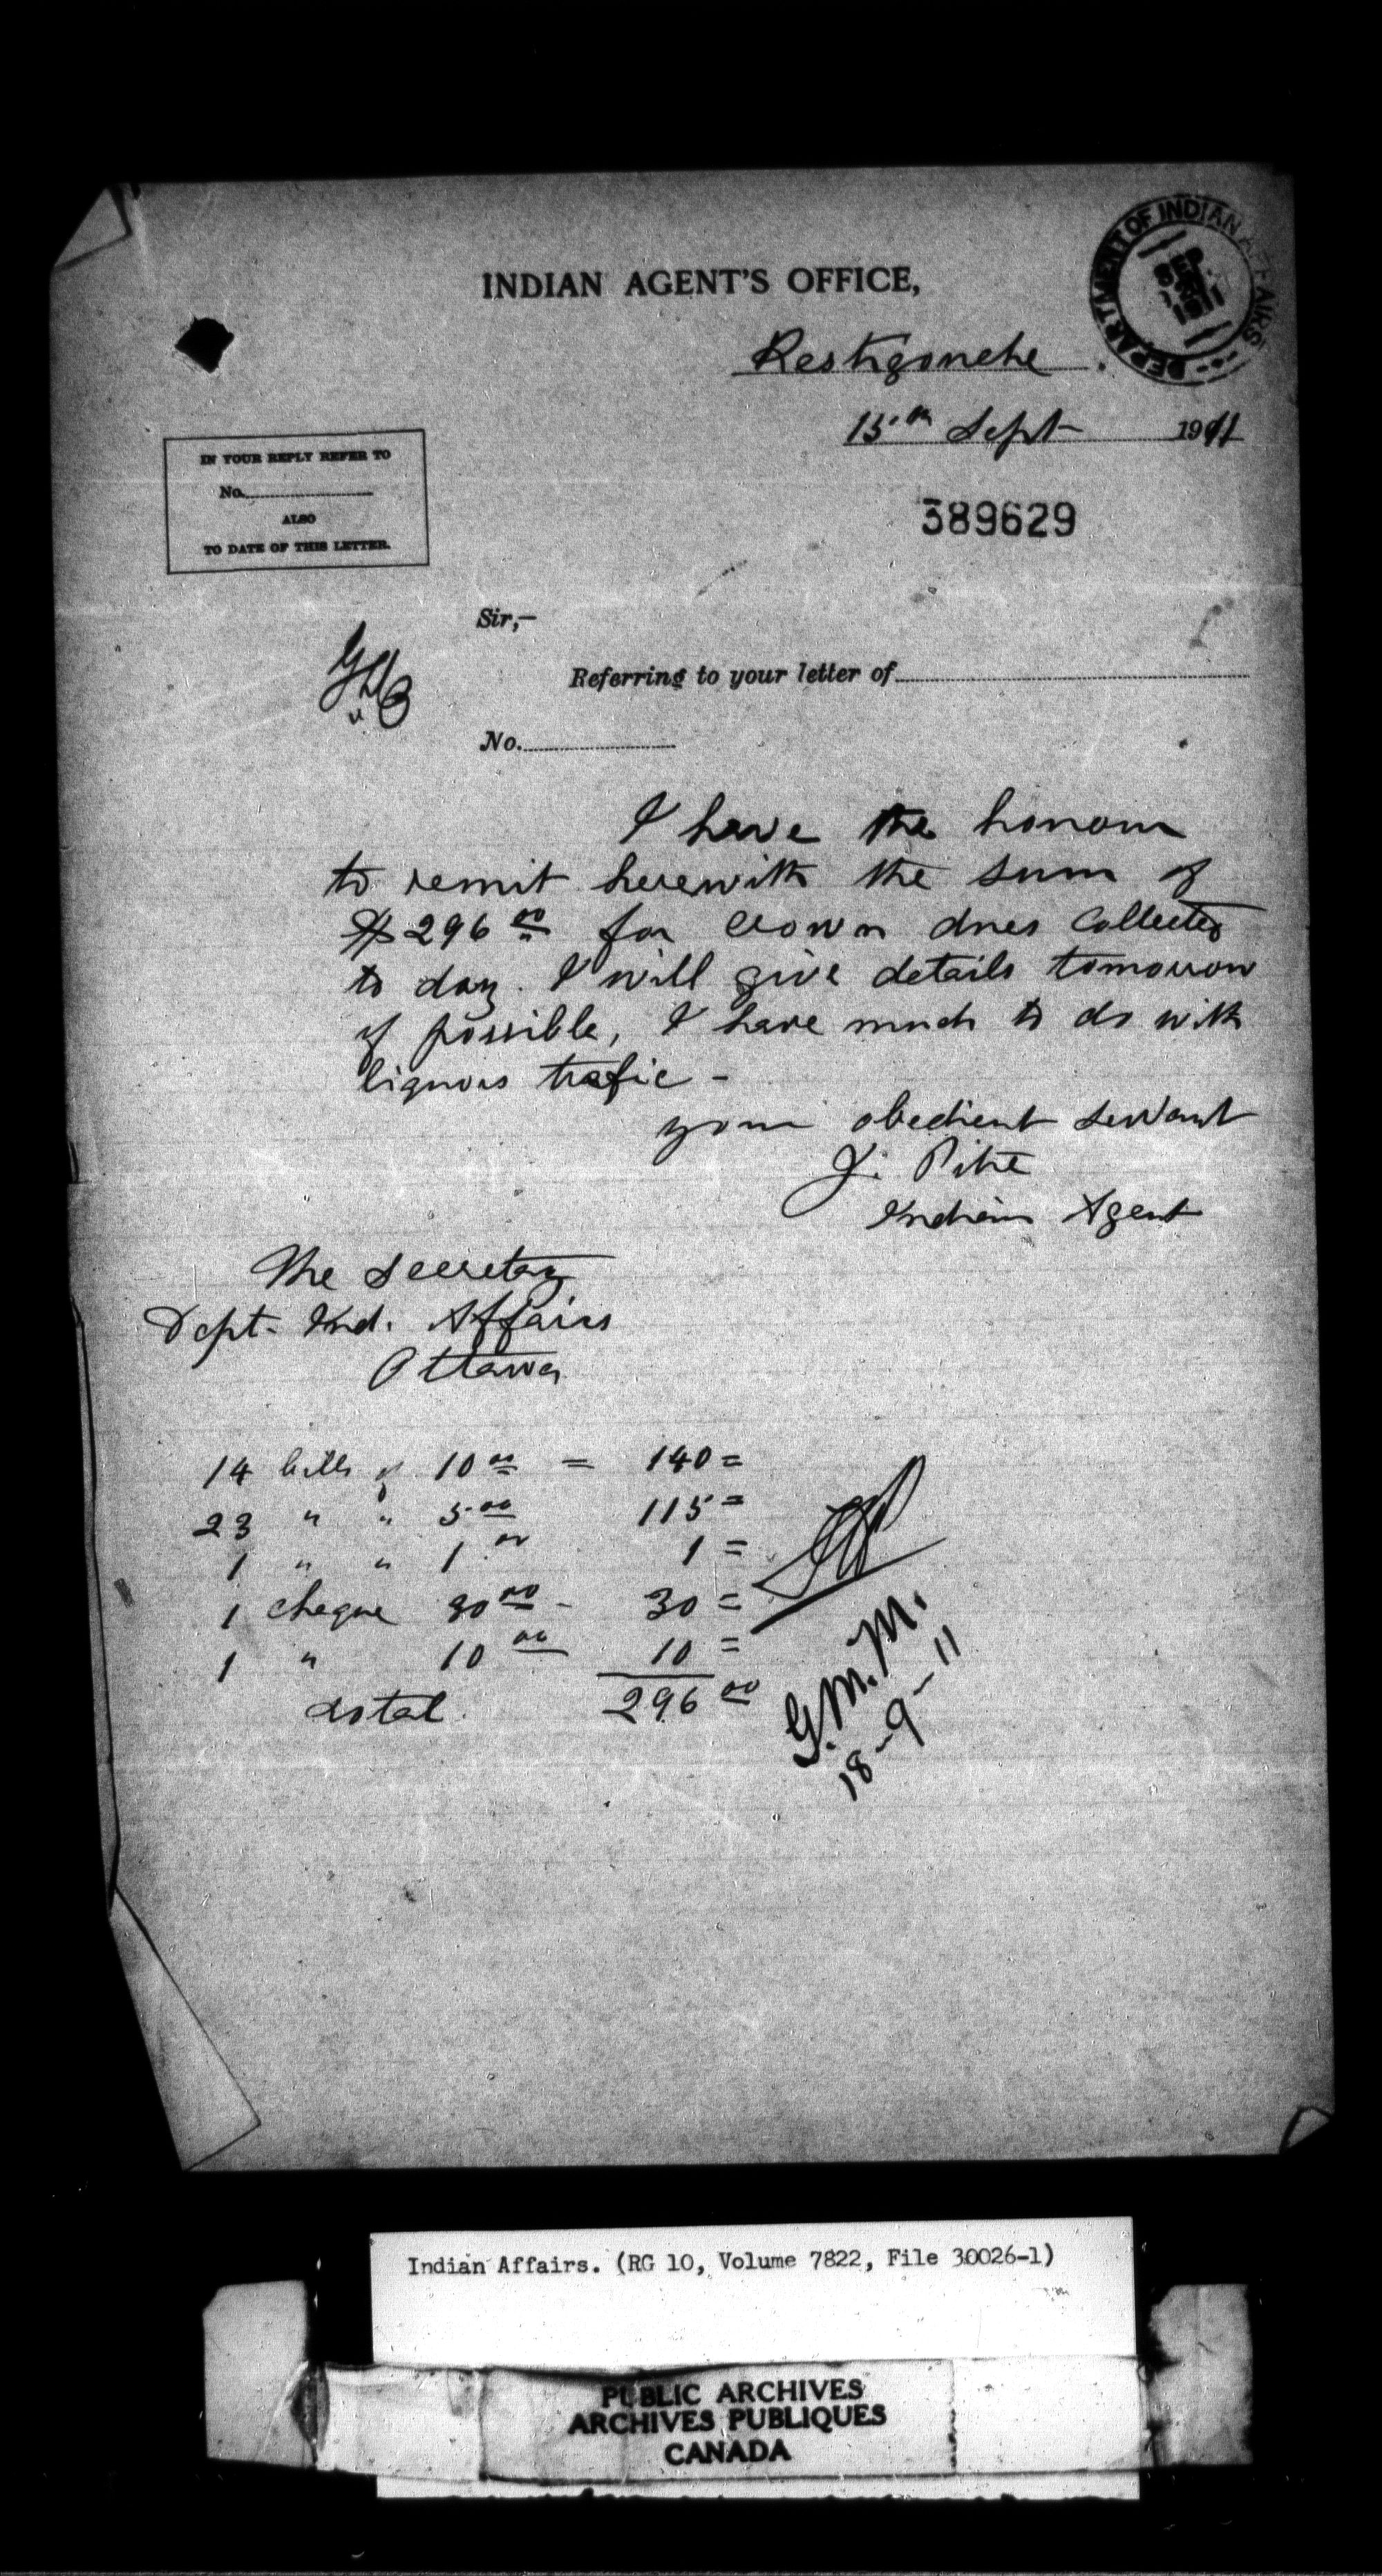 INDIAN AGENT'S OFFICE,
DEPARTMENT OF INDIAN AFFAIRS
SEP 1911
Restigouche
15th Sept 1911
IN YOUR REPLY REFER TO
No.
ALSO
TO DATE OF THIS LETTER.
389629
Sir,—
Referring to your letter of
No.
I have the honour
to remit herewith the sum of
$296 00 for crown dues collected
to day. I will give details tomorrow
if possible, I have much to do with
liquors trafic -
your obedient servant
J. Pitre
Indian Agent
The Secretary
Dept. Ind. Affairs
Ottawa
14 bills of 10 00 = 140 =
23 " " 5 00 115 =
1 " " 1 00 1 =
1 cheque 30 00 - 30 =
1 " 10 00 10 =
total 296 00
G.M.M.
18-9-11
Indian Affairs. (RG 10, Volume 7822, File 30026-1)
PUBLIC ARCHIVES
ARCHIVES PUBLIQUES
CANADA